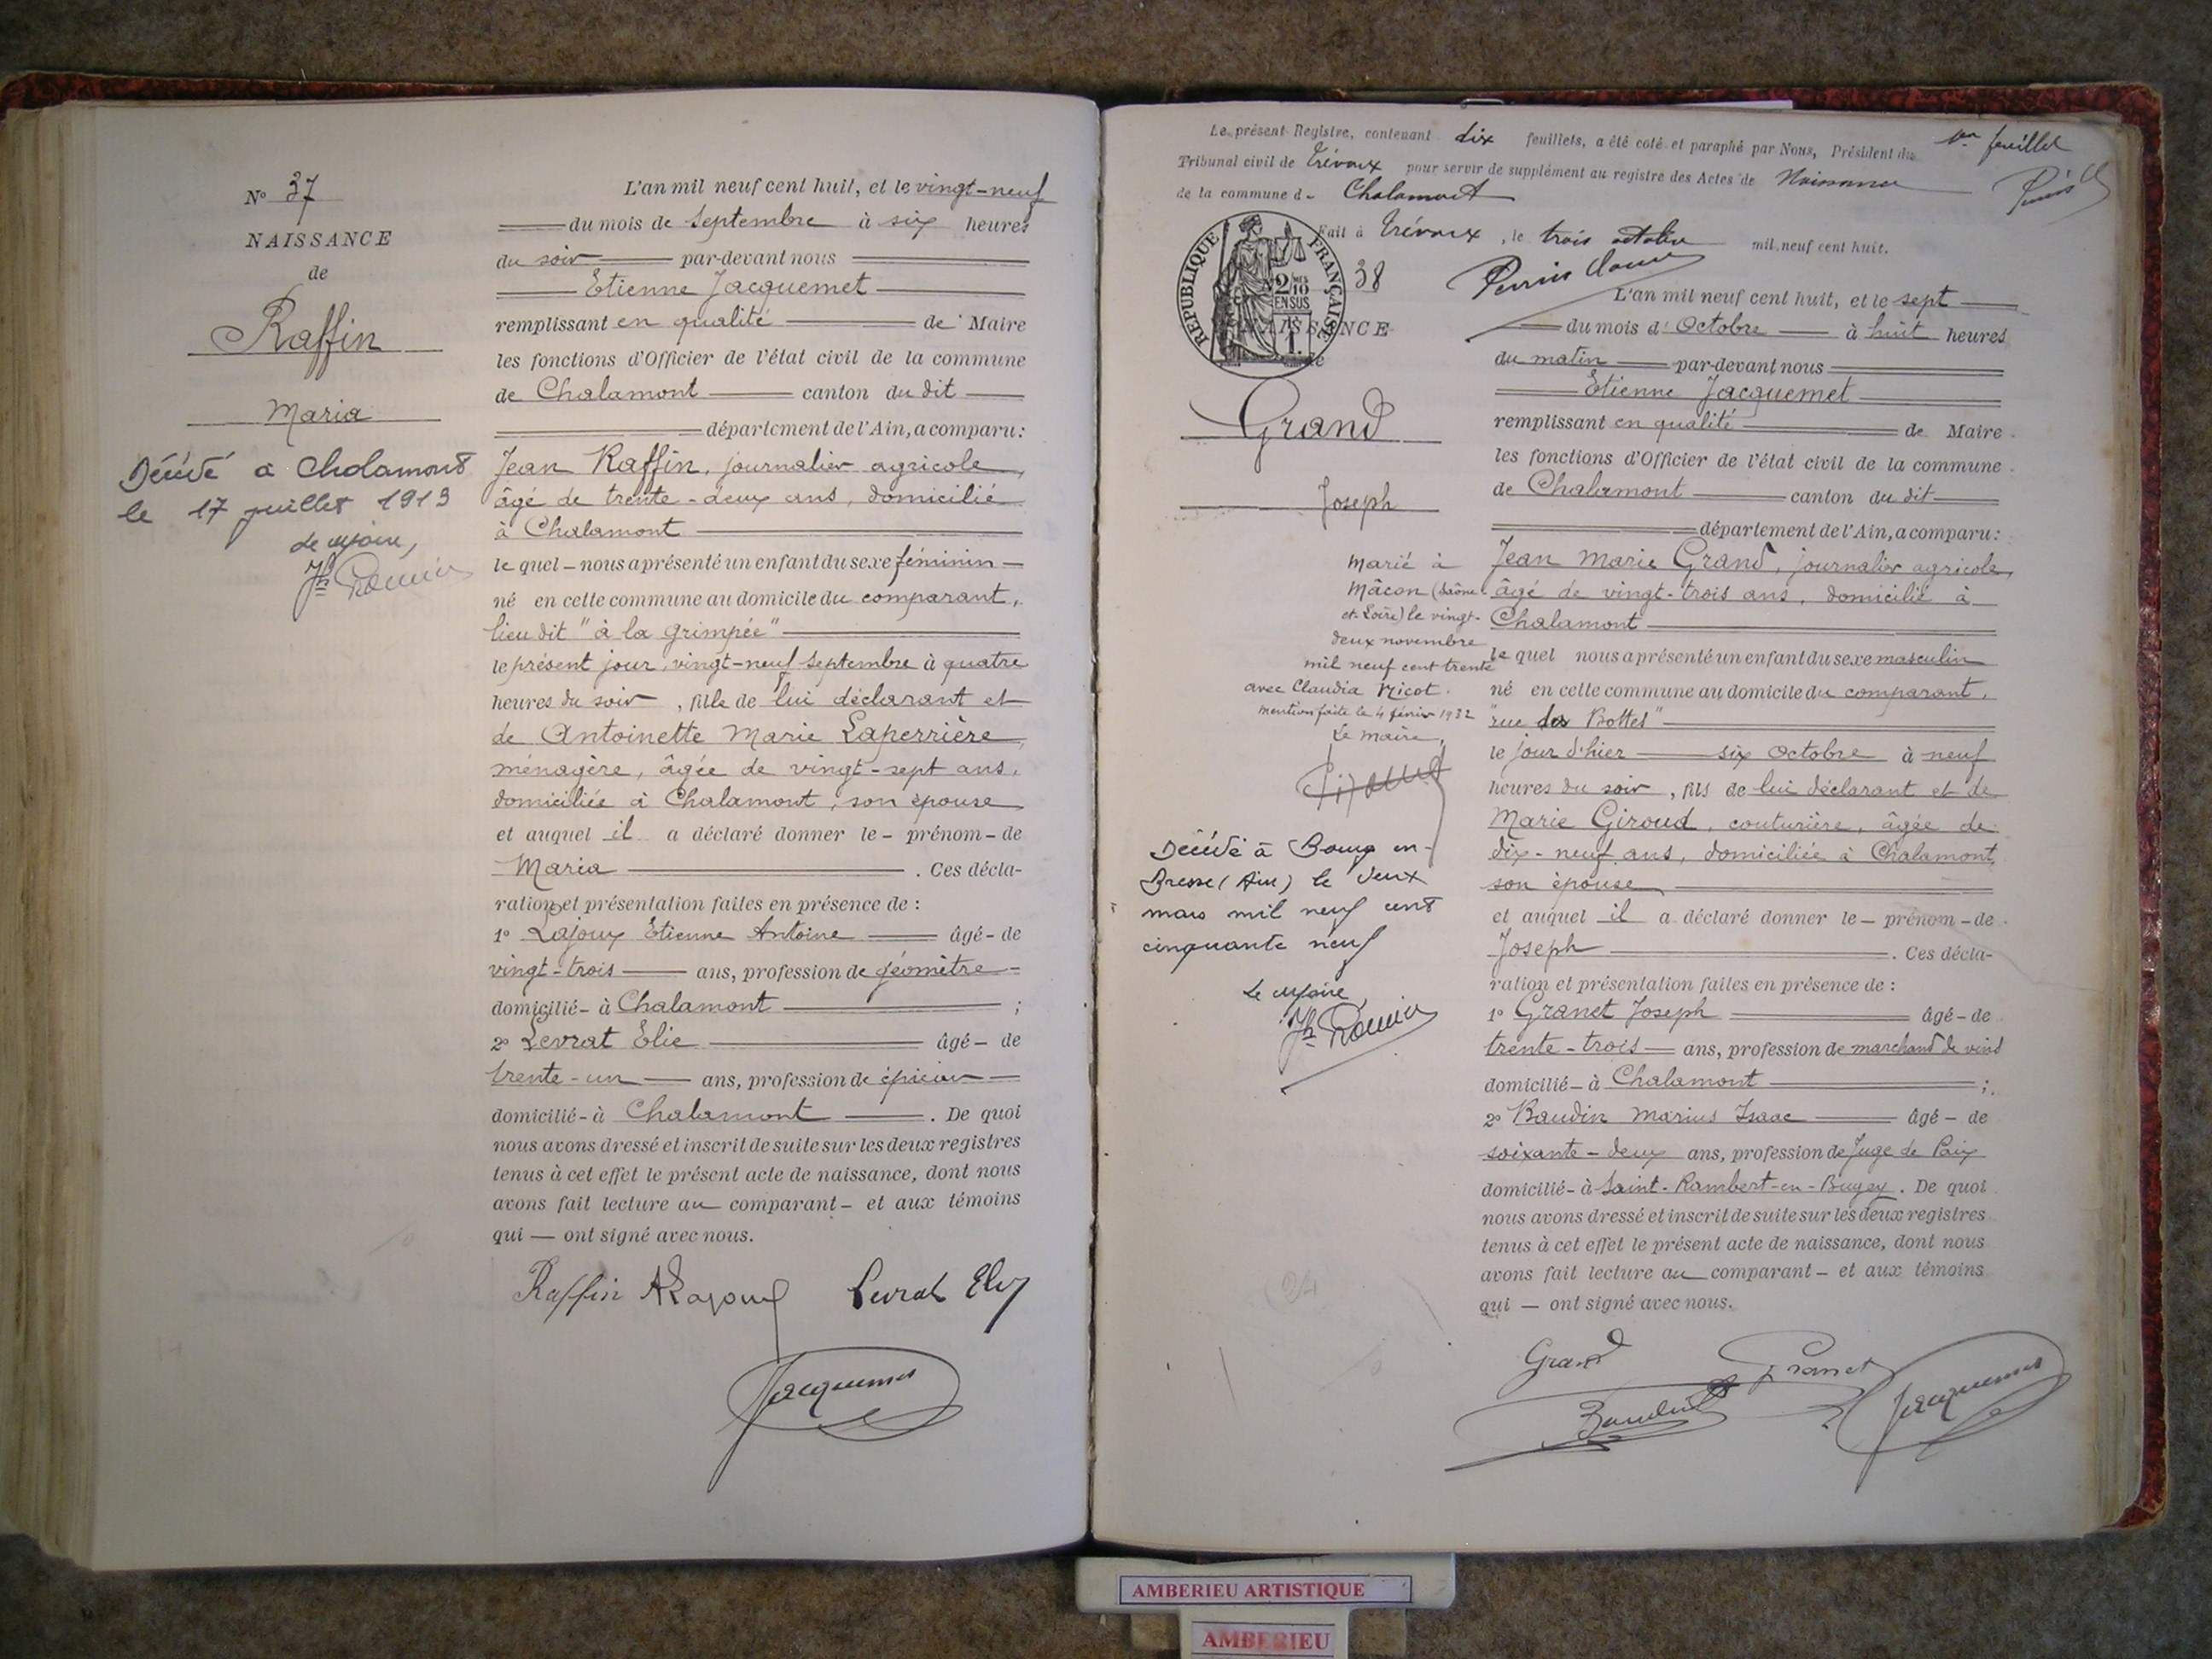 N° 37
NAISSANCE
de
Raffin
Maria
Décédé à Chalamont
le 17 juillet 1913
Le Maire,
L'an mil neuf cent huit, et le vingt-neuf
du mois de Septembre à six heures
du soir par-devant nous
Etienne Jacquemet
remplissant en qualité de Maire
les fonctions d'Officier de l'état civil de la commune
de Chalamont canton du dit
département de l'Ain, a comparu:
Jean Raffin, journalier agricole,
âgé de trente-deux ans, domicilié
à Chalamont
le quel - nous a présenté un enfant du sexe féminin -
né en cette commune au domicile du comparant,
lieu dit "à la grimpée"
le présent jour, vingt-neuf Septembre à quatre
heures du soir, fille de lui déclarant et
de Antoinette Marie Laperrière,
ménagère, âgée de vingt-sept ans,
domiciliée à Chalamont, son épouse
et auquel il a déclaré donner le - prénom - de
Maria . Ces décla-
ration et présentation faites en présence de :
1° Lajoux Etienne Antoine âgé - de
vingt-trois ans, profession de géomètre -
domicilié - à Chalamont ;
2° Levrat Elie âgé - de
trente-un ans, profession de épicier
domicilié - à Chalamont . De quoi
nous avons dressé et inscrit de suite sur les deux registres
tenus à cet effet le présent acte de naissance, dont nous
avons fait lecture au comparant - et aux témoins
qui — ont signé avec nous.
Raffin ALajoux Levrat Ely
Jacquemet
Le présent Registre, contenant dix feuillets, a été coté et paraphé par Nous, Président du
1er feuillet
Tribunal civil de Trévoux pour servir de supplément au registre des Actes de Naissance
de la commune d- Chalamont
Fait à Trévoux, le trois octobre mil neuf cent huit.
REPUBLIQUE FRANÇAISE
2/10 EN SUS
38
NAISSANCE
de
Grand
Joseph
Marié à
Mâcon (Saône
et-Loire) le vingt-
deux novembre
mil neuf cent trente
avec Claudia Nicot.
Mention faite le 4 février 1932
Le maire,
Décédé à Bourg en-
Bresse (Ain) le deux
mars mil neuf cent
cinquante neuf
Le Maire,
L'an mil neuf cent huit, et le sept
du mois d'Octobre à huit heures
du matin par-devant nous
Etienne Jacquemet
remplissant en qualité de Maire
les fonctions d'Officier de l'état civil de la commune
de Chalamont canton du dit
département de l'Ain, a comparu:
Jean Marie Grand, journalier agricole,
âgé de vingt-trois ans, domicilié à
Chalamont
le quel nous a présenté un enfant du sexe masculin
né en cette commune au domicile du comparant,
"rue des Bottes"
le jour d'hier six Octobre à neuf
heures du soir, fils de lui déclarant et de
Marie Giroud, couturière, âgée de
dix-neuf ans, domiciliée à Chalamont,
son épouse
et auquel il a déclaré donner le - prénom - de
Joseph . Ces décla-
ration et présentation faites en présence de :
1° Granet Joseph âgé - de
trente-trois ans, profession de marchand de vins
domicilié - à Chalamont ;
2° Baudin Marius Isaac âgé - de
soixante-deux ans, profession de Juge de Paix
domicilié - à Saint-Rambert-en-Bugey. De quoi
nous avons dressé et inscrit de suite sur les deux registres
tenus à cet effet le présent acte de naissance, dont nous
avons fait lecture au comparant - et aux témoins
qui — ont signé avec nous.
Grand Granet
Baudin Jacquemet
AMBERIEU ARTISTIQUE
AMBERIEU